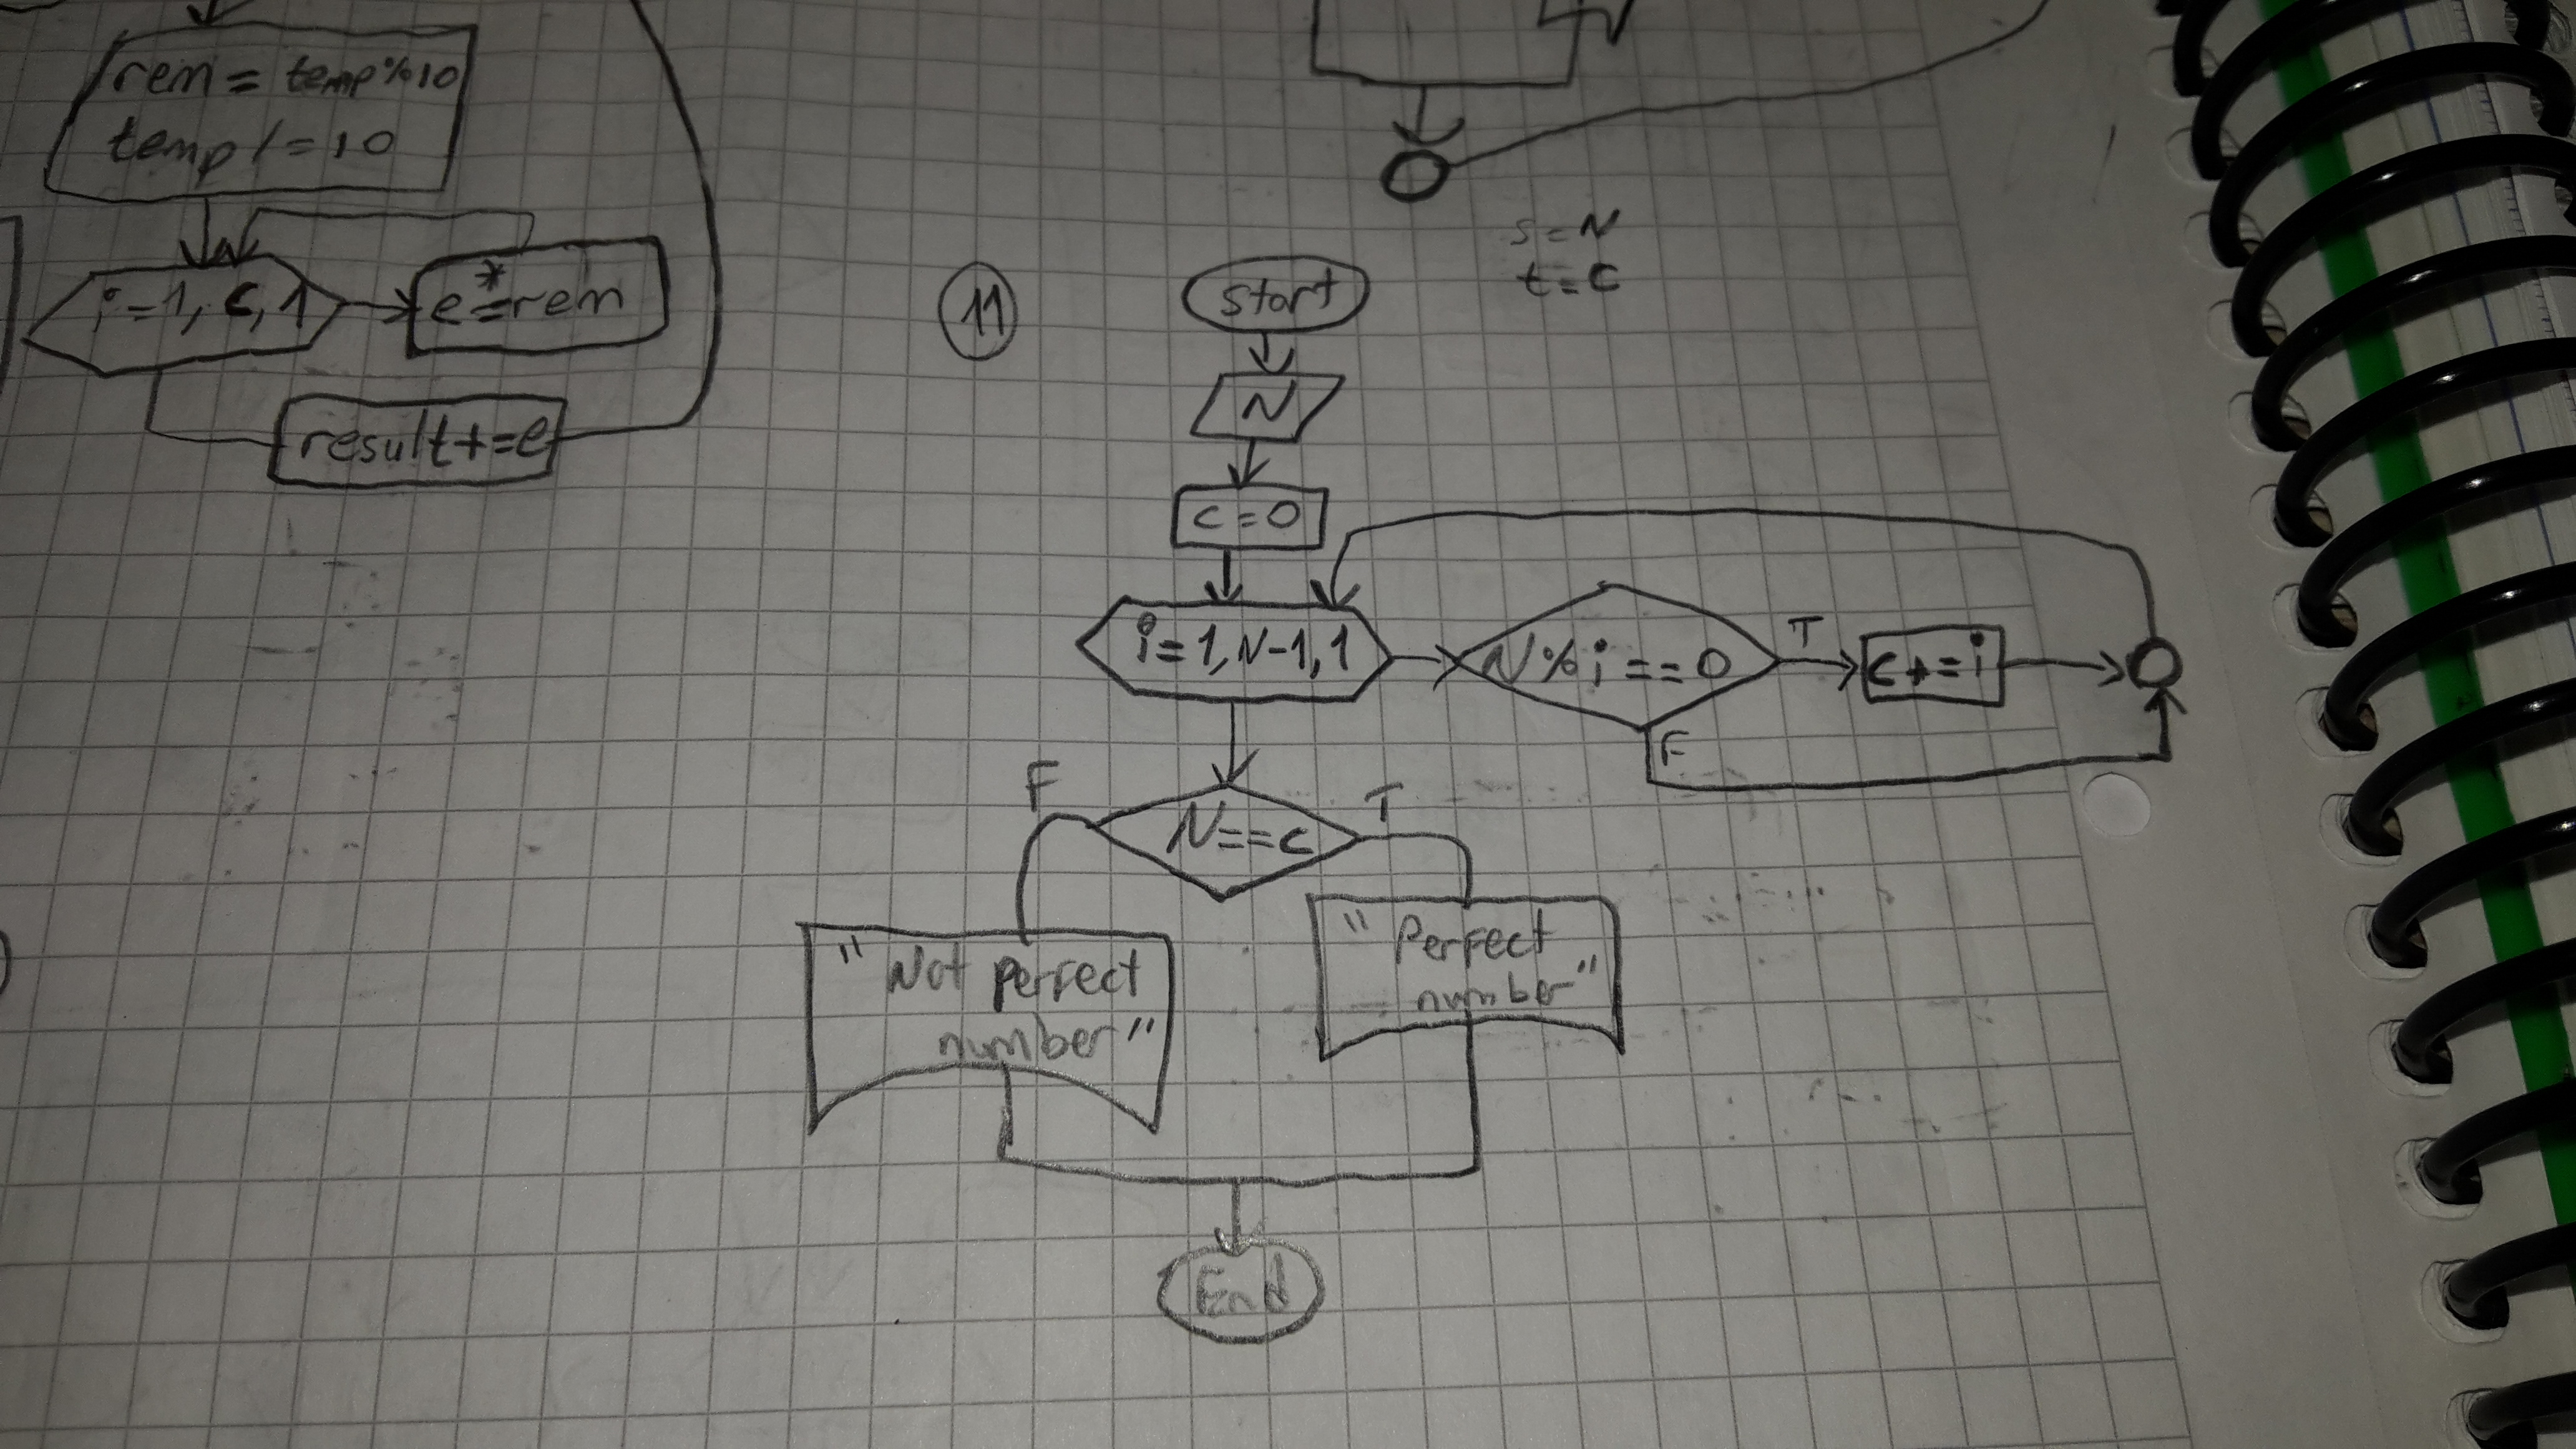 rem = temp%10
temp/=10
i=1, c, 1
e*=rem
result+=e
s=N
t=c
11
start
N
c=0
i=1, N-1, 1
N%i==0
T
c+=i
F
N==c
F
T
"Not perfect
number"
"Perfect
number"
End